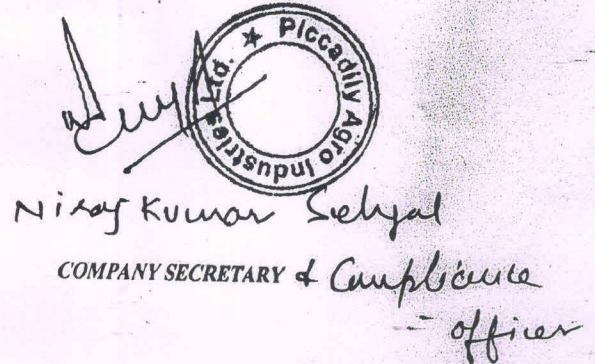 * Piccadily Agro Industries Ltd.
Niraj Kumar Sehgal
COMPANY SECRETARY & Compliance
Officer